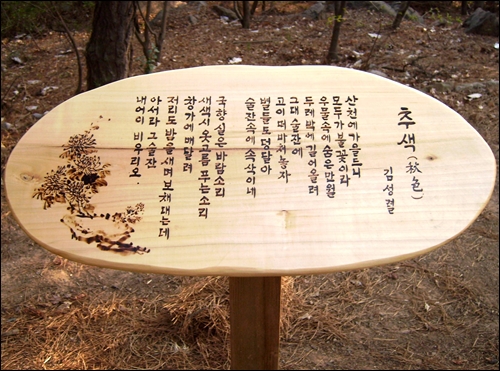 추색(秋色)
김성결
산천에 가을드니
모두가 불꽃이라
우물속에 숨은 만월
두레박에 길어올려
그대 술잔에
고이 떠 바쳐놓자
별들도 덩달아
술잔속에 속삭이네
국향 실은 바람소리
새색시 옷고름 푸는소리
창가에 매달려
저리도 밤을 새며 보채대는데
아서라 그 술잔
내어이 비우리오.